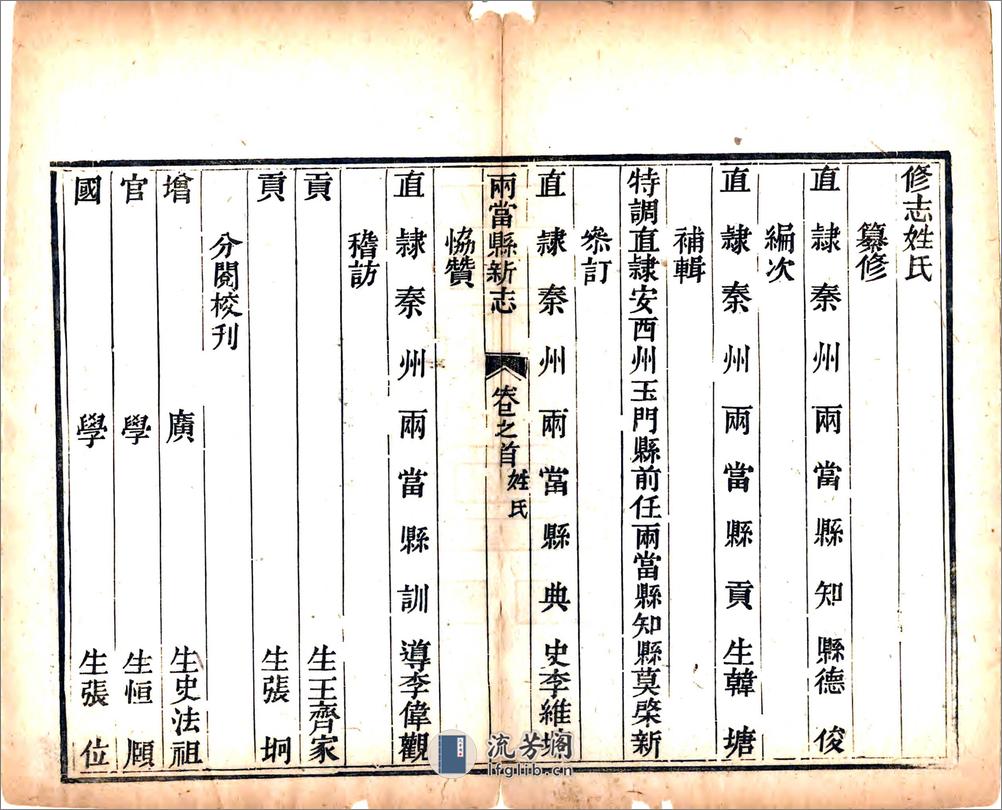 修志姓氏
纂修
直隸秦州兩當縣知縣德俊
編次
直隸秦州兩當縣貢生韓塘
補輯
特調直隸安西州玉門縣前任兩當縣知縣莫棨新
叅訂
直隸秦州兩當縣典史李維
兩當縣新志 卷之首 姓氏
恊贊
直隸秦州兩當縣訓導李偉觀
稽訪
貢生王齊家
貢生張坰
分閱校刊
增廣生史法祖
官學生恒願
國學生張位
流芳阁
lfglib.cn